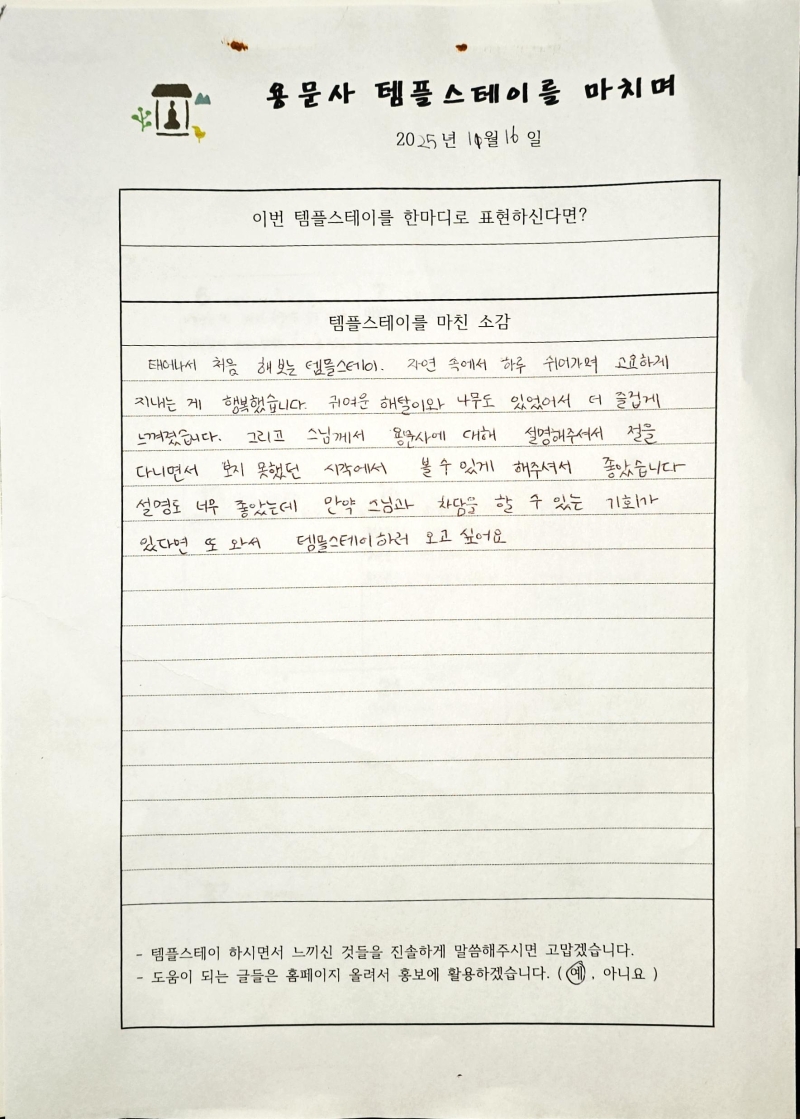 용문사 템플스테이를 마치며
2025년 11월 16일
이번 템플스테이를 한마디로 표현하신다면?
템플스테이를 마친 소감
태어나서 처음 해봤는 템플스테이. 자연 속에서 하루 쉬어가며 고요하게
지내는 게 행복했습니다. 귀여운 해탈이와 나무도 있었어서 더 즐겁게
느껴졌습니다. 그리고 스님께서 용문사에 대해 설명해주셔서 절을
다니면서 보지 못했던 시각에서 볼 수 있게 해주셔서 좋았습니다
설명도 너무 좋았는데 만약 스님과 차담을 할 수 있는 기회가
있다면 또 와서 템플스테이하러 오고 싶어요
- 템플스테이 하시면서 느끼신 것들을 진솔하게 말씀해주시면 고맙겠습니다.
- 도움이 되는 글들은 홈페이지 올려서 홍보에 활용하겠습니다. ( 예 , 아니요 )